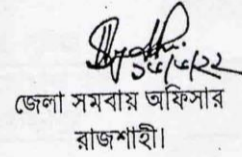 ১৫/৫/২২
জেলা সমবায় অফিসার
রাজশাহী।